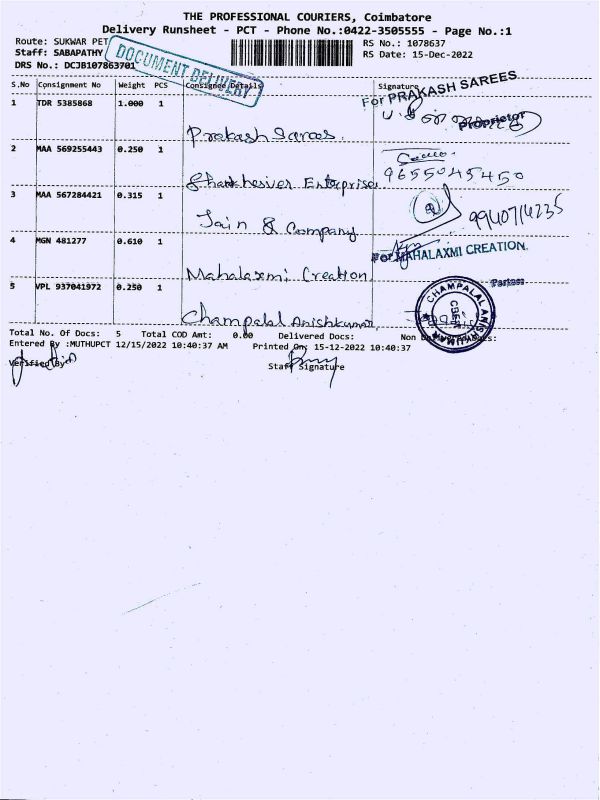 THE PROFESSIONAL COURIERS, Coimbatore
Delivery Runsheet - PCT - Phone No.:0422-3505555 - Page No.:1
Route: SUKWAR PET
RS No.: 1078637
Staff: SABAPATHY
RS Date: 15-Dec-2022
DRS No.: DCJB107863701
DOCUMENT DELIVERY
S.No Consignment No Weight PCS Consignee Details Signature
For PRAKASH SAREES
1 TDR 5385868 1.000 1
Proprietor
Prakash Sarees.
2 MAA 569255443 0.250 1
9655045450
Shankheswer Enterprises
3 MAA 567284421 0.315 1
9940714235
Jain & Company
4 MGN 481277 0.610 1
For MAHALAXMI CREATION.
Mahalaxmi Creation
5 VPL 937041972 0.250 1
Partner
CHAMPALAL ANISHKUMAR
CBE-1
Champalal Anishkumar,
Total No. Of Docs: 5 Total COD Amt: 0.00 Delivered Docs: Non Delivered Docs:
Entered By :MUTHUPCT 12/15/2022 10:40:37 AM Printed On: 15-12-2022 10:40:37
Verified By
Staff Signature